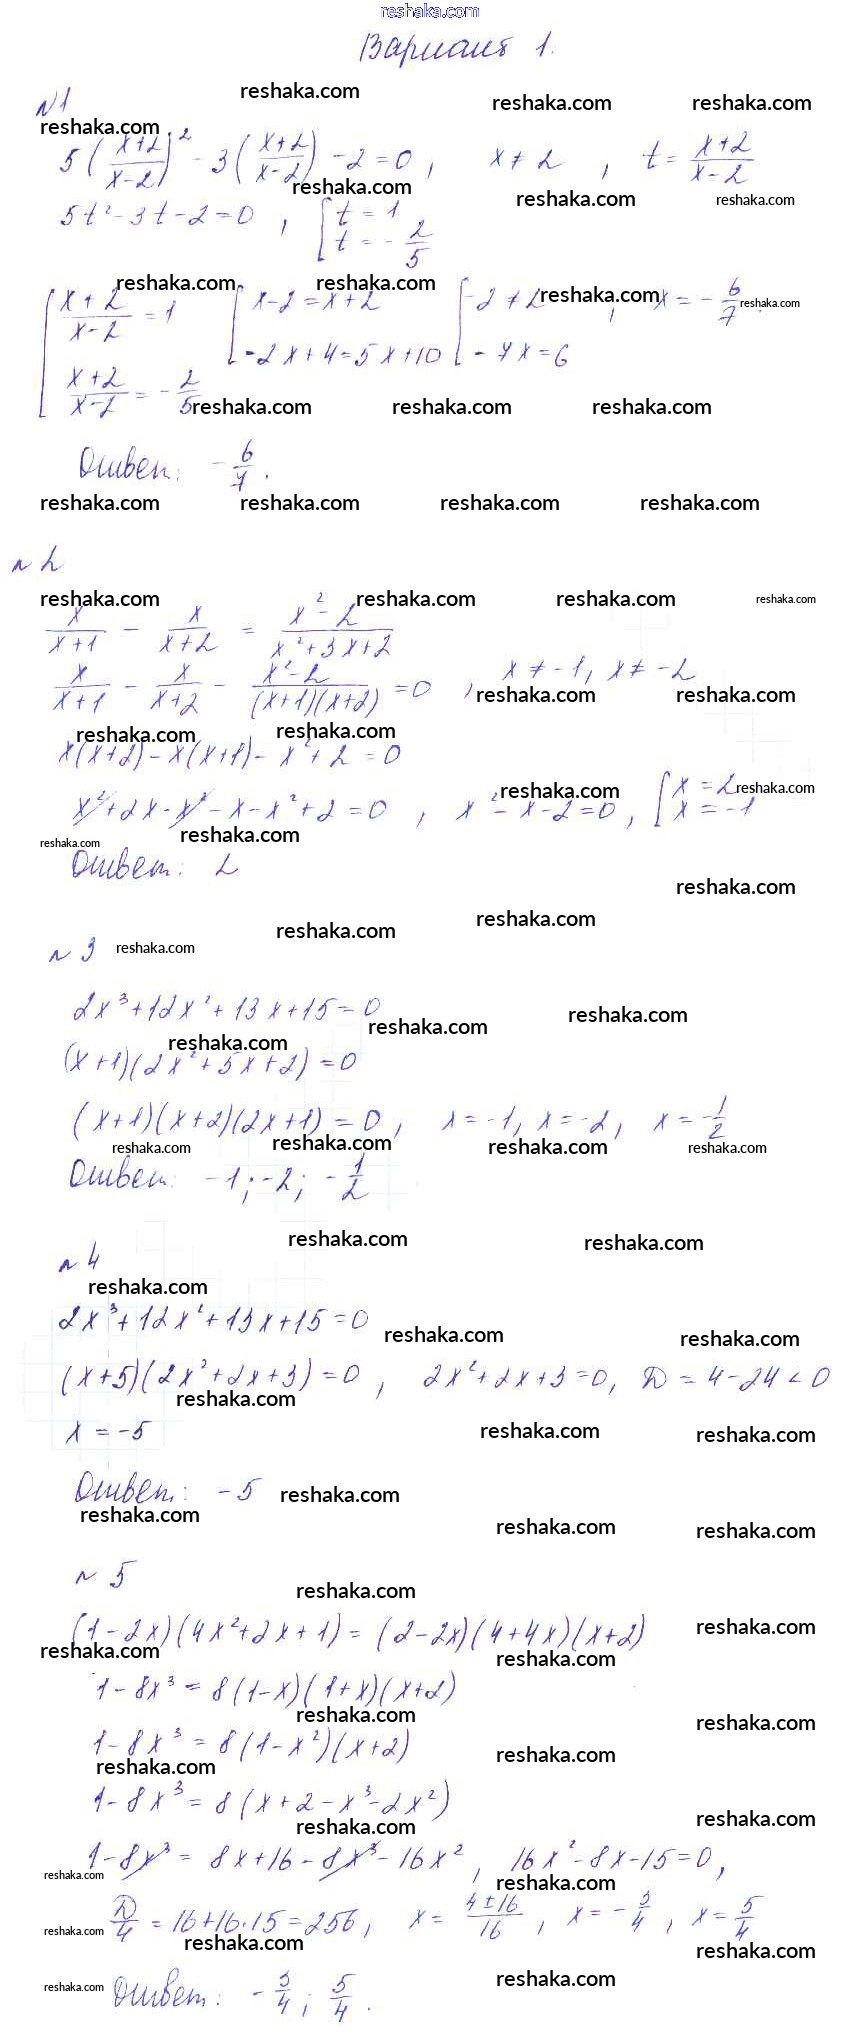 reshaka.com
Вариант 1.
№1
5((x+2)/(x-2))² - 3((x+2)/(x-2)) - 2 = 0, x ≠ 2, t = (x+2)/(x-2)
5t² - 3t - 2 = 0, [t = 1
t = -2/5
[(x+2)/(x-2) = 1 [x-2 = x+2 [-2 ≠ 2, x = -6/7.
(x+2)/(x-2) = -2/5 -2x+4=5x+10 -7x=6
Ответ: -6/7.
№2
x/(x+1) - x/(x+2) = (x²-2)/(x²+3x+2)
x/(x+1) - x/(x+2) - (x²-2)/((x+1)(x+2)) = 0, x ≠ -1, x ≠ -2
x(x+2) - x(x+1) - x² + 2 = 0
x² + 2x - x² - x - x² + 2 = 0, x² - x - 2 = 0, [x = 2
x = -1
Ответ: 2
№3
2x³+12x²+13x+15=0
(x+1)(2x²+5x+2)=0
(x+1)(x+2)(2x+1)=0, x=-1, x=-2, x=-1/2
Ответ: -1; -2; -1/2
№4
2x³+12x²+13x+15=0
(x+5)(2x²+2x+3)=0, 2x²+2x+3=0, D = 4-24<0
x = -5
Ответ: -5
№5
(1-2x)(4x²+2x+1) = (2-2x)(4+4x)(x+2)
1-8x³ = 8(1-x)(1+x)(x+2)
1-8x³ = 8(1-x²)(x+2)
1-8x³ = 8(x+2-x³-2x²)
1-8x³ = 8x+16-8x³-16x², 16x²-8x-15=0,
D/4 = 16+16·15=256, x = (4±16)/16, x = -3/4, x = 5/4
Ответ: -3/4; 5/4.